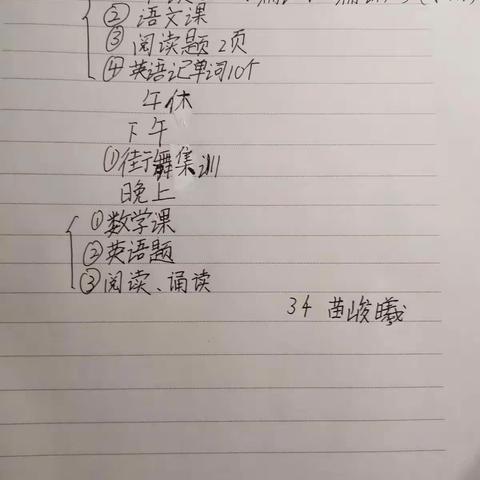 ② 语文课
③ 阅读题 2页
④ 英语记单词10个
午休
下午
①街舞集训
晚上
①数学课
②英语题
③阅读、诵读
34 苗峻曦